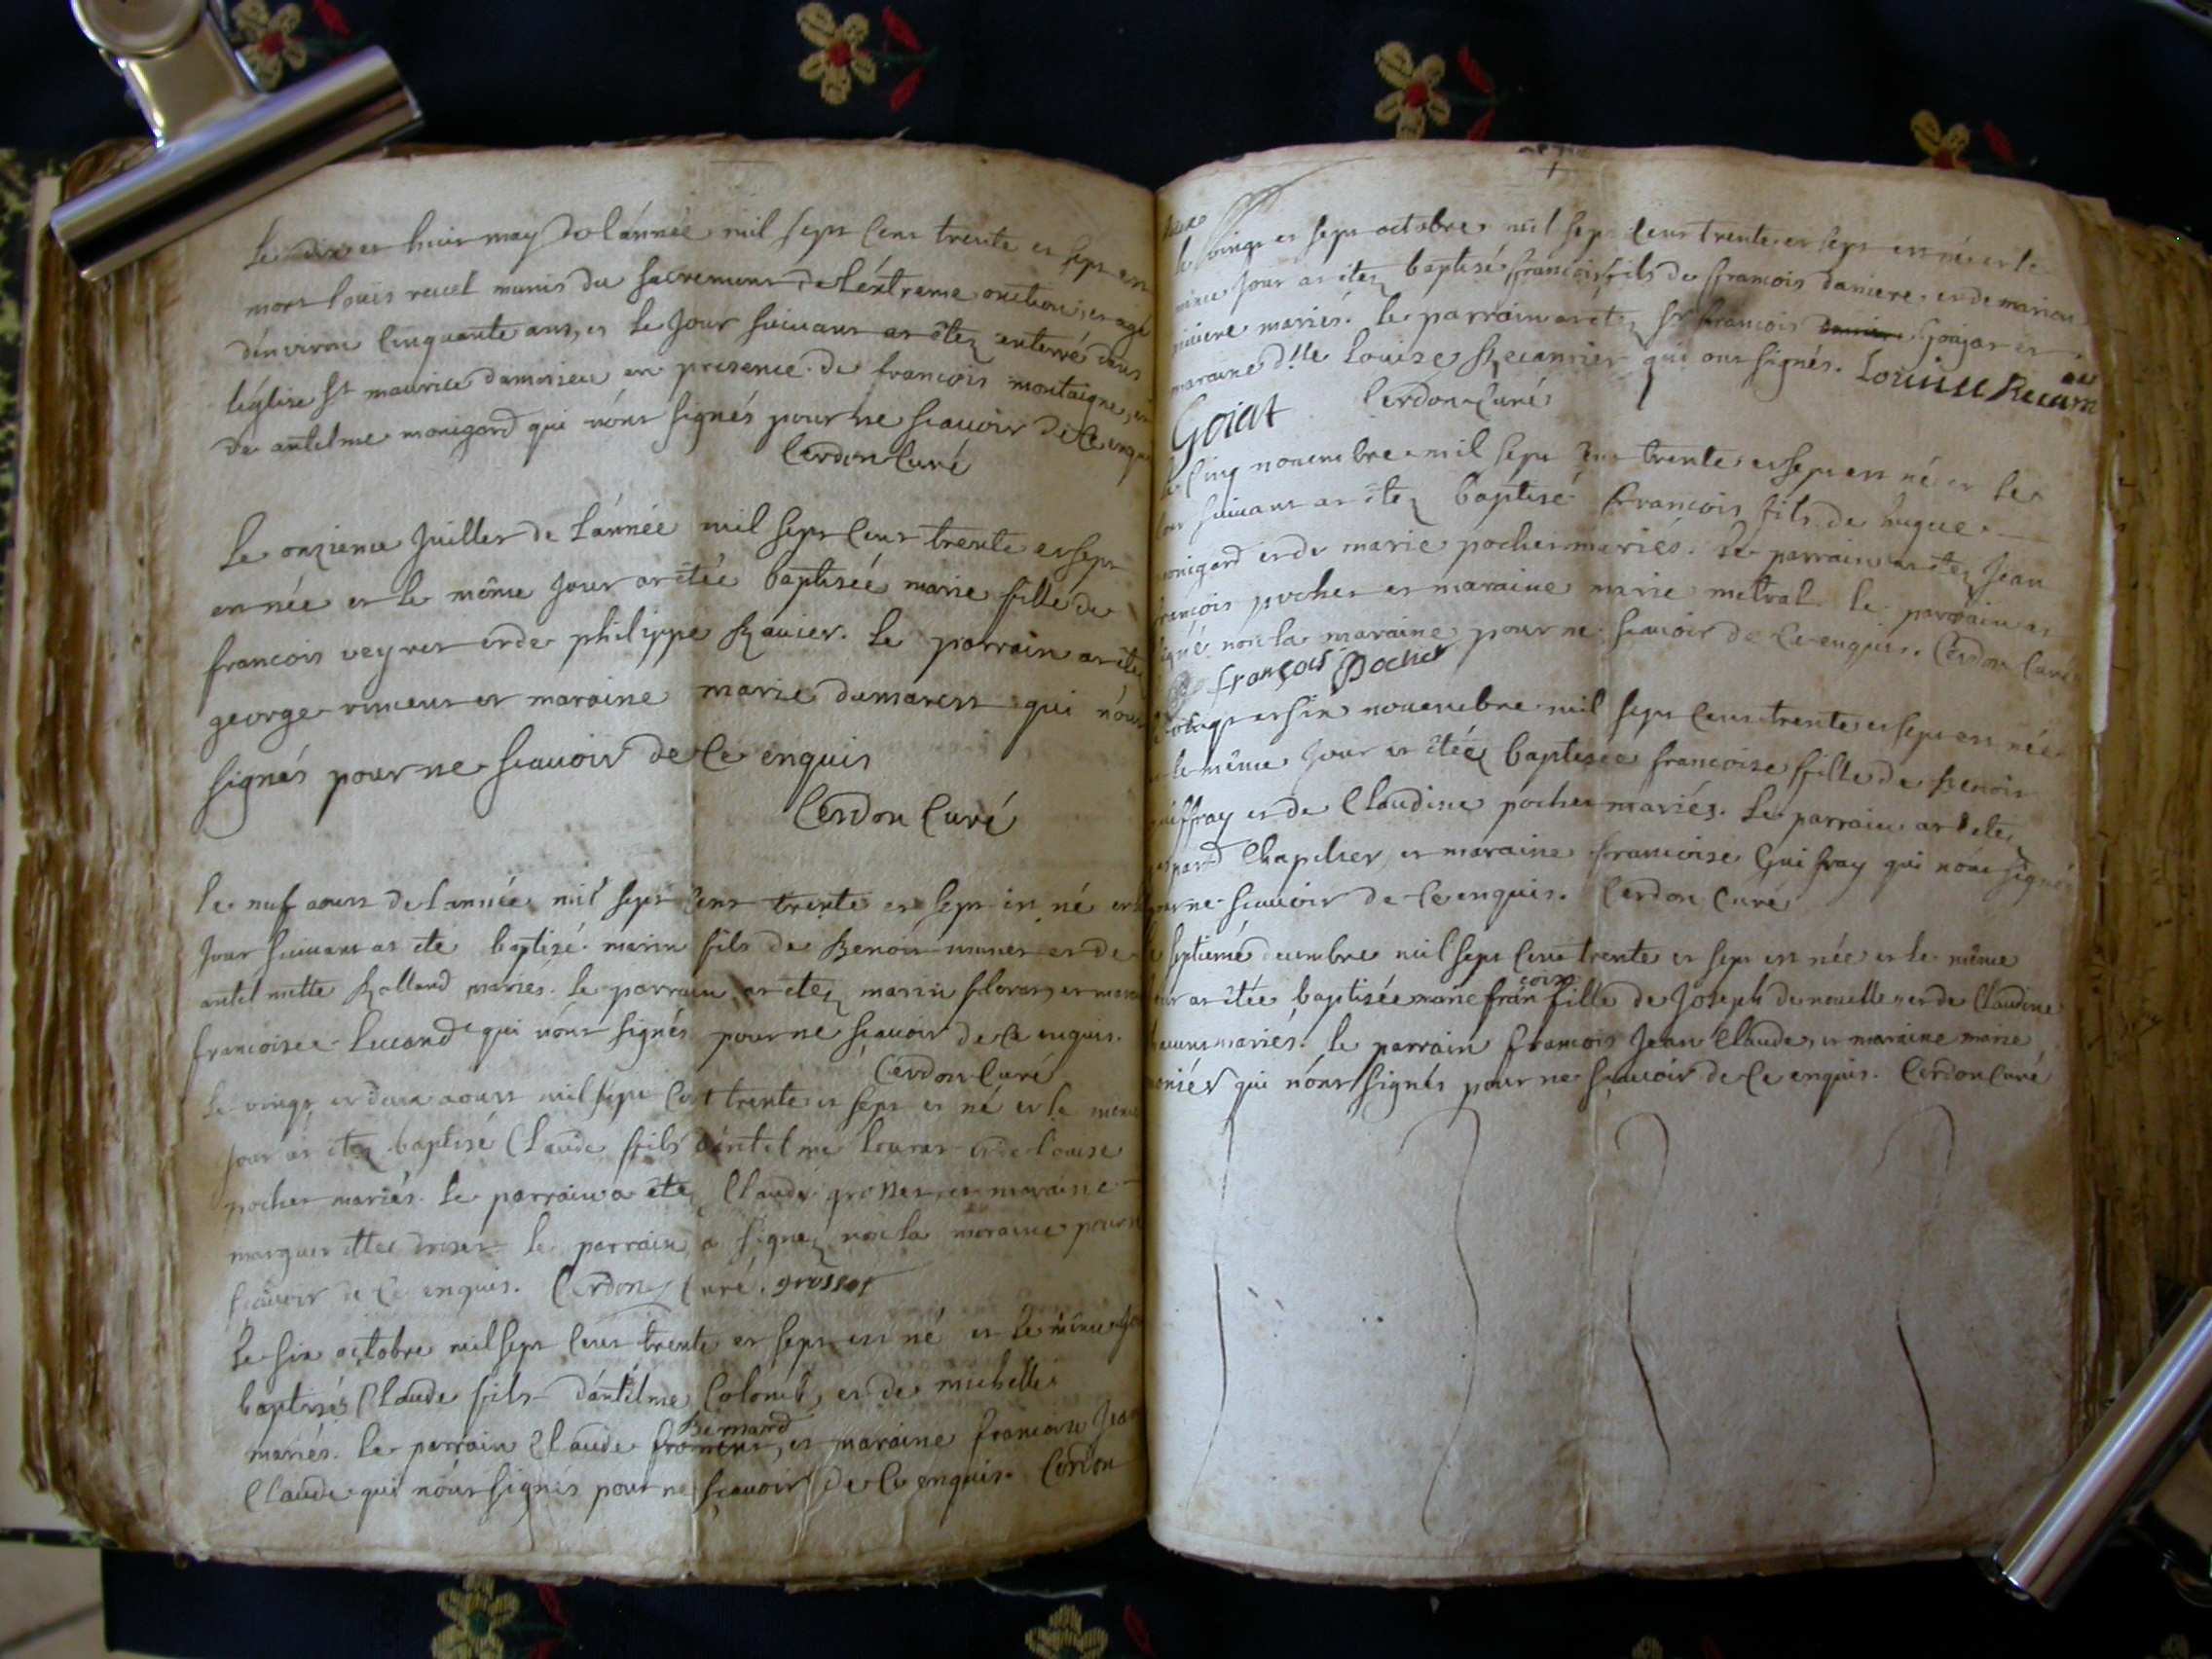 Le dix et huit may de l'année mil sept cent trente et sept est
mort louis revel munis du sacrement de l'éxtreme onction, et agé
d'environ cinquante ans, et le jour suivant at étez enterré dans
l'église St maurice damesieu en presence de francois montaigne, et
de antelme monigard qui n'ont signés pour ne scauoir de ce enquis
Cerdon Curé
Le onzieme Juillet de l'année mil sept cent trente et sept
est née et le même jour at étée baptisée marie fille de
francois veyret et de philippe Ravier. le parrain at éte
george vincent et maraine marie dumarest qui n'ont
signés pour ne scauoir de ce enquis
Cerdon Curé
le nuf aoust de l'année mil sept cent trente et sept est né et le
jour suivant at été baptizé marin fils de Benoit et de
antelmette Rolland mariés. le parrain at étez marin et
francoise qui n'ont signés pour ne scauoir de ce enquis.
Cerdon Curé
Le vingt et deux aoust mil sept cent trente et sept est né et le même
jour at étez baptisé Claude fils d'antelme et de louise
pochet mariés. le parrain a étez Claude grosset et maraine
le parrain a signez non la maraine pour ne
scauoir de ce enquis. Cerdon Curé. grosset
Le six octobre mil sept cent trente et sept est né et le même jour
baptisés Claude fils d'antelme Colomb, et de michelle
mariés. le parrain Claude Bernard, et maraine francoise Jean
Claude qui n'ont signés pour ne scauoir de ce enquis. Cerdon
Curé
le vingt et sept octobre mil sept cent trente et sept est né et le
même jour at étez baptisé francois fils de francois daniere, et de marion
mariés. le parrain at étez Sr francois Goujat et
maraine dlle Louise Recamier qui ont signés. Louise Recam
Goiat Cerdon Curé
le cinq nouembre mil sept cent trente et sept est né et le
jour suivant at étez baptisé francois fils de hugue
monigard et de marie pochet mariés. le parrain at étez Jean
françois pochet et maraine marie metral le parrain at
signé non la maraine pour ne scauoir de ce enquis. Cerdon Curé
françois Pochet
le vingt et six nouembre mil sept cent trente et sept est née
et le même jour at étéez baptisée francoise fille de Benoit
guiffray et de Claudine pochet mariés. le parrain at étez
gaspard Chapelier, et maraine francoise Guifray qui n'ont signés
pour ne scauoir de ce enquis. Cerdon Curé
le septiemé decembre mil sept cent trente et sept est née et le même
jour at étée baptisée marie francoise fille de Joseph denouelle et de Claudine
mariés. le parrain francois Jean Claude, et maraine marie
qui n'ont signés pour ne scauoir de ce enquis. Cerdon Curé